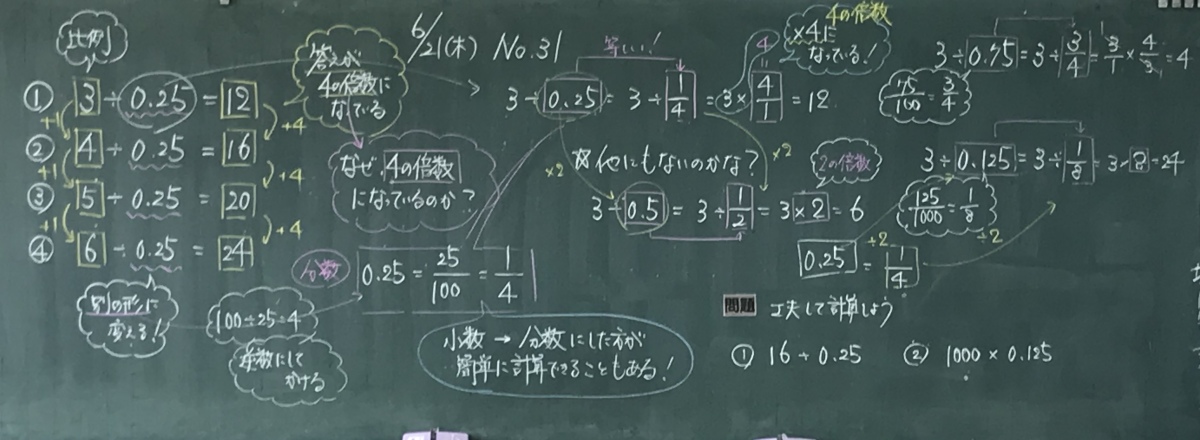 6/21(木) No.31
比例
① 3 ÷ 0.25 = 12
② 4 ÷ 0.25 = 16
③ 5 ÷ 0.25 = 20
④ 6 ÷ 0.25 = 24
+1
+1
+1
+4
+4
+4
答えが
4の倍数に
なっている
なぜ、4の倍数
になっているのか?
別の形に
変える!
100÷25=4
逆数にして
かける
分数
0.25 = 25/100 = 1/4
小数 → 分数にした方が
簡単に計算できることもある!
等しい!
3 ÷ 0.25 = 3 ÷ 1/4 = 3 × 4/1 = 12
4
4の倍数
×4に
なっている!
他にもないのかな?
×2
×2
2の倍数
3 ÷ 0.5 = 3 ÷ 1/2 = 3 × 2 = 6
3 ÷ 0.75 = 3 ÷ 3/4 = 3/1 × 4/3 = 4
75/100 = 3/4
3 ÷ 0.125 = 3 ÷ 1/8 = 3 × 8 = 24
125/1000 = 1/8
÷2
÷2
0.25 = 1/4
問題 工夫して計算しよう
① 16 ÷ 0.25
② 1000 × 0.125